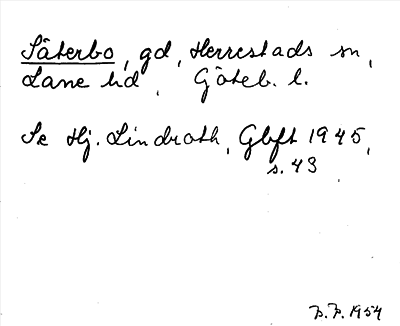 Säterbo, gd, Herrestads sn,
Lane hd, Göteb. l.
Se Hj. Lindroth, Gbft 1945,
s. 43.
P.P. 1954